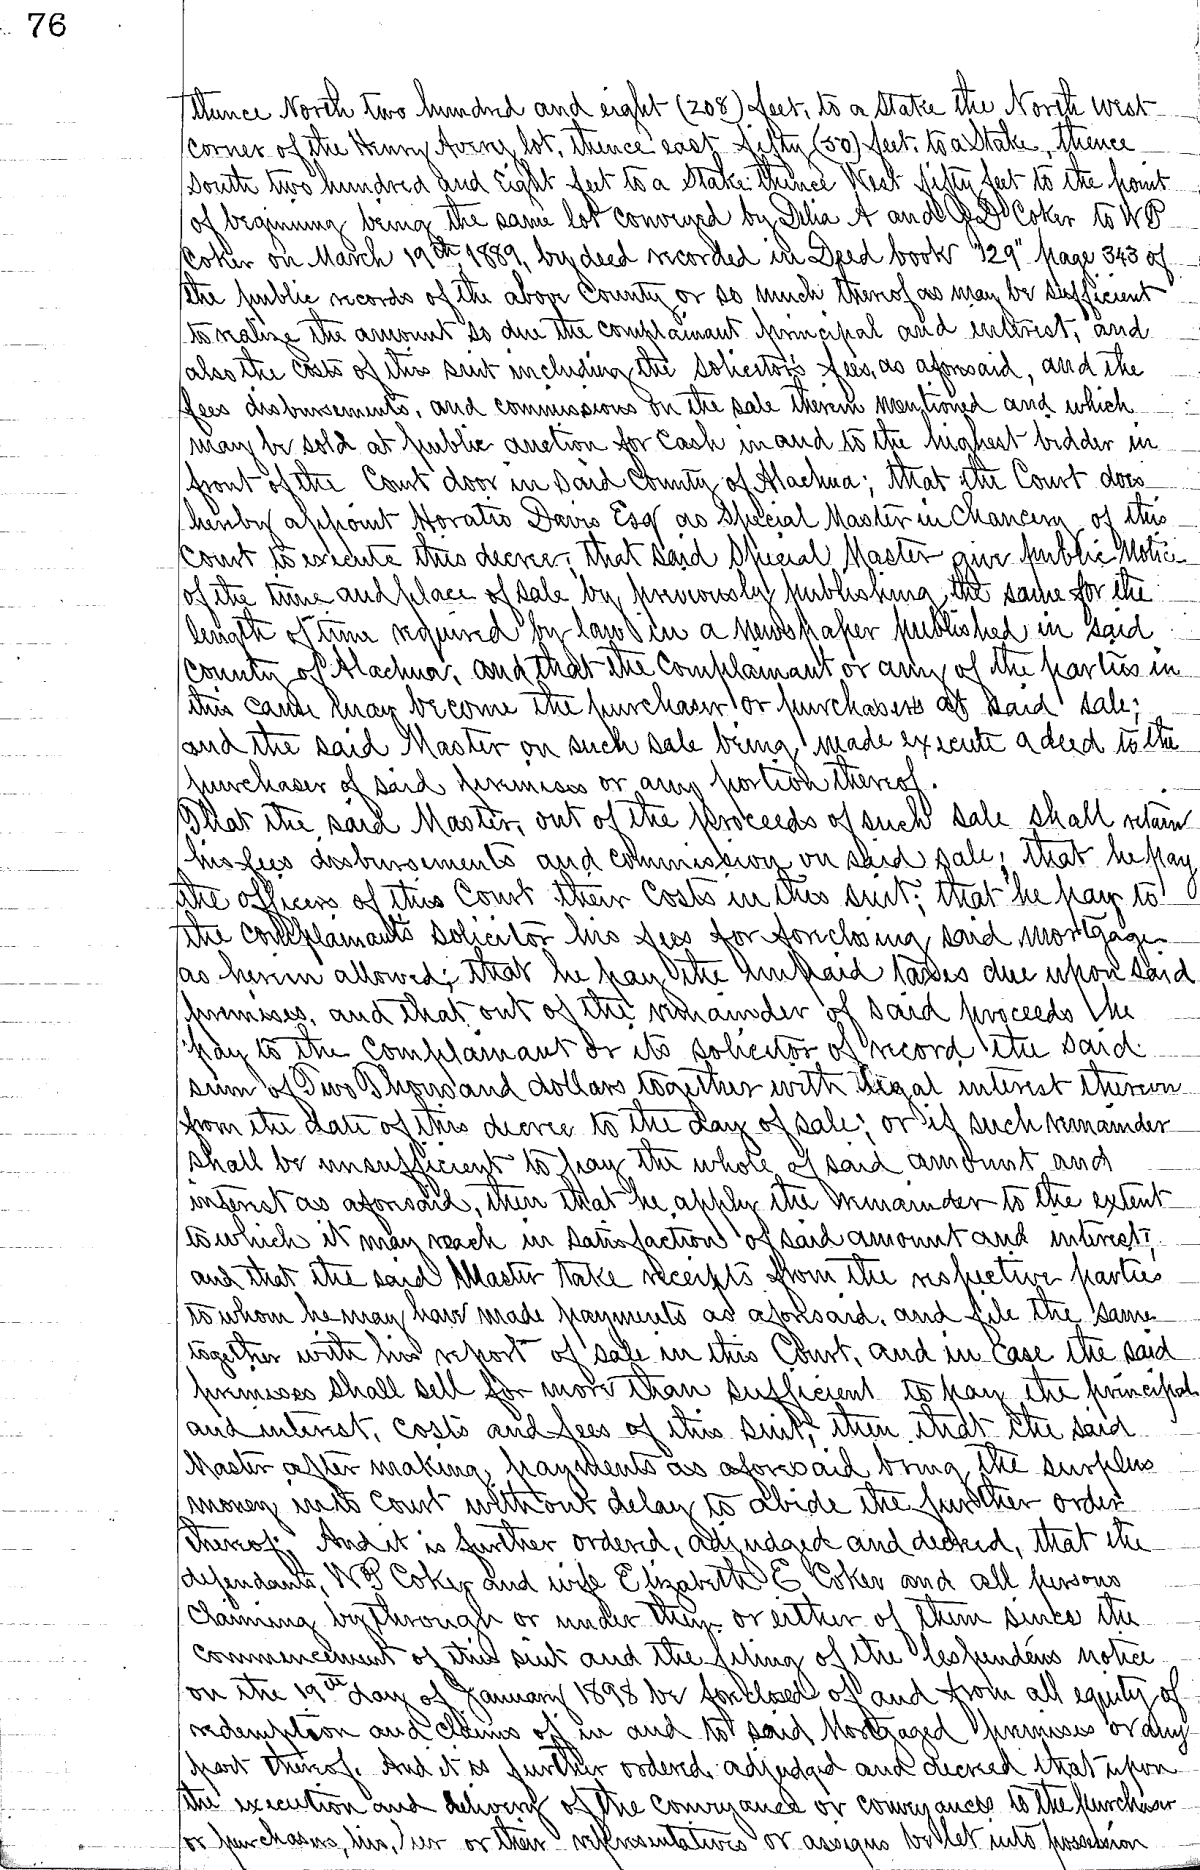 76
thence North two hundred and eight (208) feet, to a Stake the North west
corner of the Henry Avery lot, thence east fifty (50) feet to a Stake, thence
South two hundred and Eight feet to a Stake thence West fifty feet to the point
of beginning being the same lot conveyed by Delia A and Coker to W P
Coker on March 19th 1889, by deed recorded in Deed book "29" page 343 of
the public records of the above County or so much thereof as may be sufficient
to realize the amount so due the complainant principal and interest, and
also the costs of this suit including the solicitor's fees, as aforesaid, and the
fees disbursements, and commissions on the sale therein mentioned and which
may be sold at public auction for cash in and to the highest bidder in
front of the Court door in said County of Alachua; that the Court does
hereby appoint Horatio Davis Esq as Special Master in Chancery of this
Court to execute this decree; that said Special Master give public Notice
of the time and place of sale by previously publishing the same for the
length of time required by law in a newspaper published in said
County of Alachua, and that the Complainant or any of the parties in
this cause may become the purchaser or purchasers at said sale;
and the said Master on such sale being made execute a deed to the
purchaser of said premises or any portion thereof.
That the said Master, out of the proceeds of such sale shall retain
his fees disbursements and commission on said sale; that he pay
the officers of this Court their Costs in this suit; that he pay to
the complainants solicitor his fees for foreclosing said mortgage
as herein allowed; that he pay the unpaid taxes due upon said
premises, and that out of the remainder of said proceeds he
pay to the Complainant or its solicitor of record the said
sum of Two Thousand dollars together with legal interest thereon
from the date of this decree to the day of sale; or if such remainder
shall be insufficient to pay the whole of said amount and
interest as aforesaid, then that he apply the remainder to the extent
to which it may reach in satisfaction of said amount and interest;
and that the said Master take receipts from the respective parties
to whom he may have made payments as aforesaid, and file the same
together with his report of sale in this Court, and in case the said
premises shall sell for more than sufficient to pay the principal
and interest, costs and fees of this suit, then that the said
Master after making payments as aforesaid bring the surplus
money into Court without delay to abide the further order
thereof. And it is further ordered, adjudged and decreed, that the
defendants, W P Coker and wife Elizabeth E Coker and all persons
claiming by through or under them or either of them since the
commencement of this suit and the filing of the lespendens notice
on the 19th day of January 1898 be foreclosed of and from all equity of
redemption and claims of in and to said Mortgaged premises or any
part thereof. And it is further ordered, adjudged and decreed that upon
the execution and delivery of the conveyance or conveyances to the purchaser
or purchasers, his, her or their representatives or assigns be let into possession